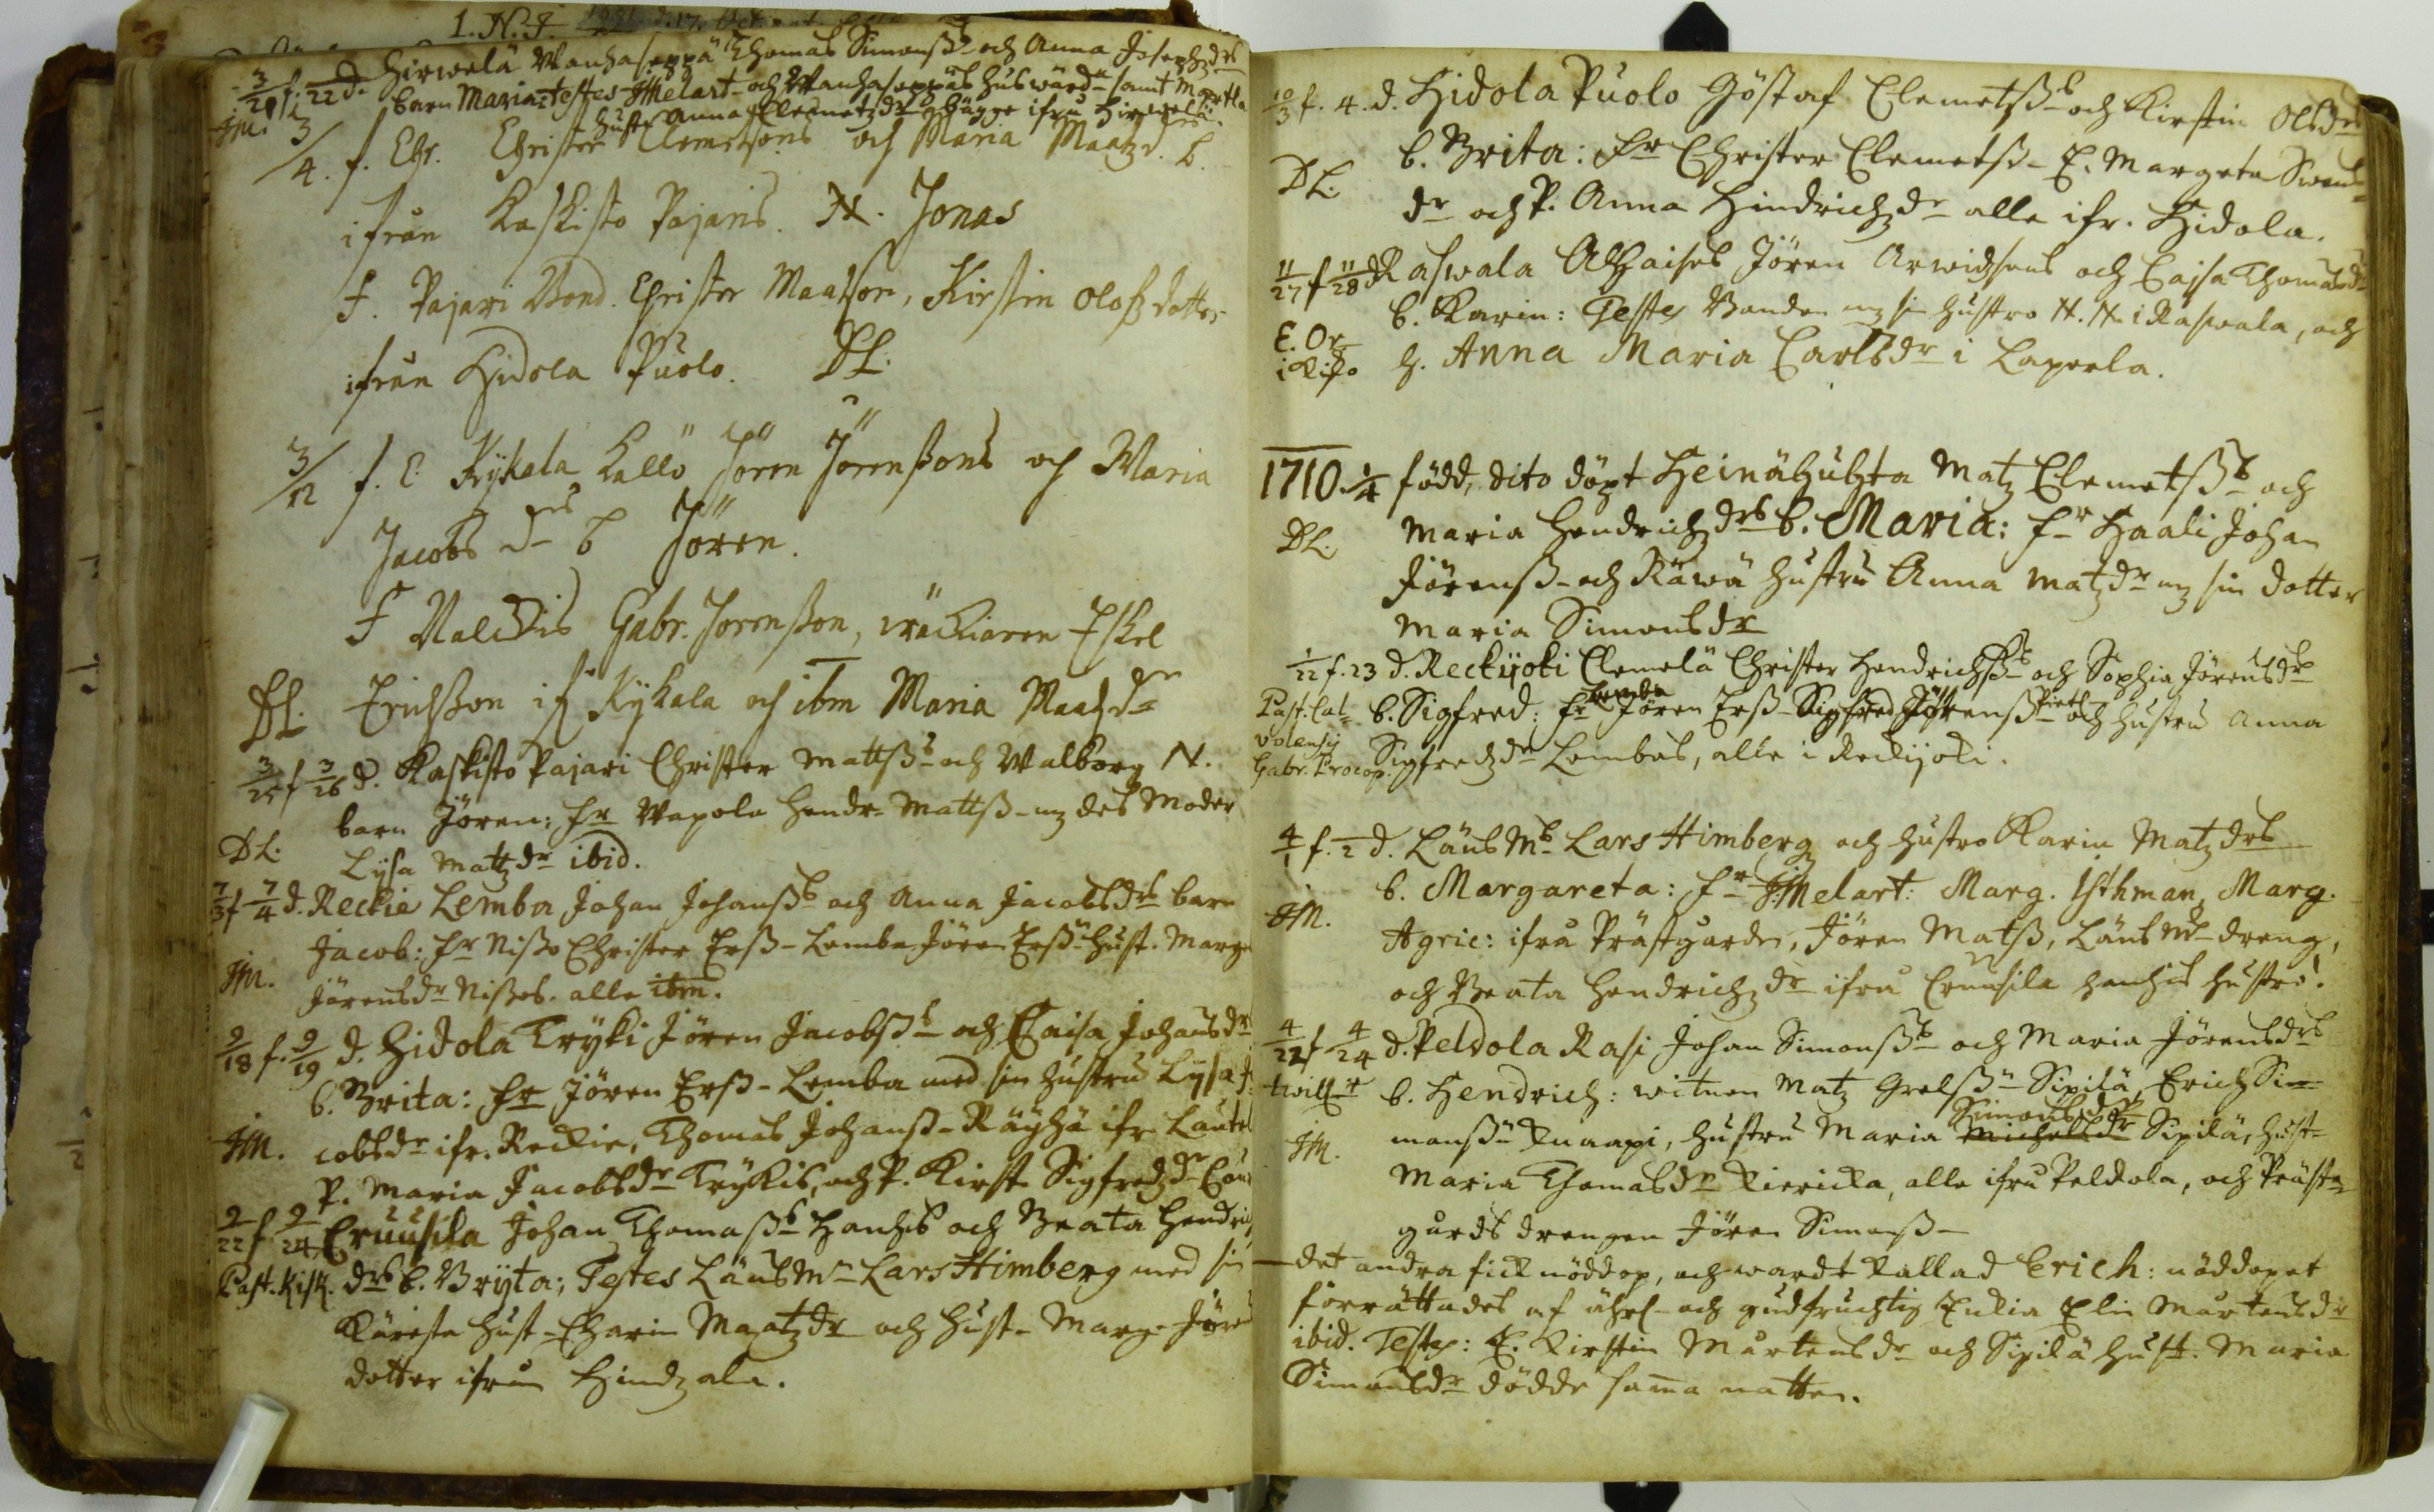 1. N. J.
3/20 f. 22 d. Hirwelä Wanhaseppä Thomas Simonssß och Anna Josephsdrs
barn Maria: testes JMelart och Wanhaseppäs huswärd samt Martla
JM. hustr Anna Clemetzdr bägge ifrå Hirwelä.
3/4. f. Chr. Christer Clemetsons och Maria Maatzd. b.
ifrån Kaskisto Pajaris. N. Jonas
F. Pajari Bond. Christer Maatson, Kirstin Oloffzdotter
ifrån Hidola Puolo. DL.
3/12 f. C. Kÿkala Kallö Jören Jörenssons och Maria
Jacobs drs b Jören.
F Nalckis Gabr. Jörensson, Eskel
DL. Erichsson if Kÿkala och ibm Maria Maatzdr
3/25 f 3/26 d. Kaskisto Pajari Christer Mattssß och Walborg N.
barn Jören: fr Wapola Hendr. Mattsß mz des Moder
DL. Lÿsa Mattzdr ibid.
7/3 f 7/4 d. Reckie Lemba Johan Johanssß och Anna Jacobsdrs barn
Jacob: fr Nisso Christer Ersß Lemba Jören Ersß hust. Marg
JM. Jörensdr Nisses. alle ibm.
9/18 f. 9/19 d. Hidola Trÿki Jören Jacobssß och Caisa Johansdrs
b. Brita: fr Jören Ersß Lemba med sin hustru Lÿsa Ja
JM. cobsdr ifr. Reckie, Thomas Johansß Räÿhä ifr
P. Maria Jacobsdr Trÿkis, och P. Kirst. Sigfredzdr
9/22 f 9/24 Eruusila Johan Thomassß Hanhis och Beata Hendric
Past. Kisk. drs b. Brÿta; Testes Länsmn Lars Himberg med sin
Käresta hust. Charin Maatzdr och hust. Marg. Jören
dotter ifrån Hindzala.
10/3 f. 4. d. Hidola Puolo Göstaf Clemetssß och Kirstin Olsdrs
b. Brita: fr Christer Clemetsß E. Margeta Swens
DL. dr och P. Anna Hindrichzdr alle ifr. Hidola.
11/27 f 11/28 d Raswala Alhaises Jören Arwidssons och Caisa Thomasdrs
b. Karin: Testes Bonden mz sin hustro N. N. i Raswala, och
E. Or. i Kisko h. Anna Maria Carlsdr i Laperla.
1710. 1/4 född, dito döpt Heinähuhta Matz Clemetssß och
DL. Maria Hendrichzdrs b. Maria: fr Haali Johan
Jörensß och Räwä hustru Anna Matzdr mz sin dotter
Maria Simonsdr
1/22 f. 23 d. Reckijoki Clemelä Christer Hendrichssß och Sophia Jörensdrs
Past. Cal- b. Sigfred: fr Lemba Jören Ersß Sigfred Jörensß Pietl och hustru Anna
volensis Sigfredzdr Lembas, alle i Reckijoki.
Gabr. Procop.
4/1 f. 2 d. Länsmß Lars Himberg och hustro Karin Matzdrs
b. Margareta: fr JMelart: Marg. Isthman, Marg.
JM. Agric: ifrå Prästgården, Jören Matsß, Länsmns dreng,
och Beata Hendrichzdr ifrå Eruusila Hanhis hustro.
4/22 f 4/24 d. Peldola Rasi Johan Simonssß och Maria Jörensdrs
twill. b. Hendrich: witnen Matz Grelsß Sipilä, Erich Si-
JM. monsß Knaapi, hustru Maria Michelsdr Simonsdr Sipilä, hust.
Maria Thomasdr Kiericka, alle ifrå Peldola, och Präste
gårds drengen Jören Simonsß
det andra fick nöddop, och wardt kallad Erich: nöddopet
förrättades af ährl. och gudfruchtig Enkia Elin Mårtensdr
ibid. Testes: E. Kirstin Mårtensdr och Sipilä hust. Maria
Simonsdr dödde samma natten.